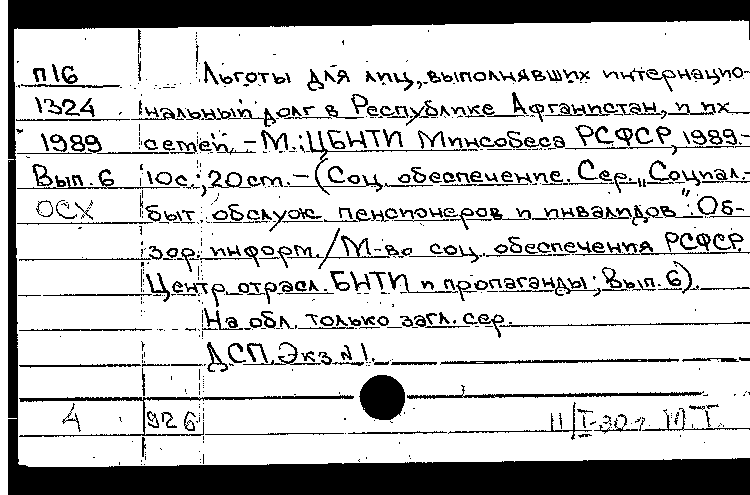 П16 Льготы для лиц, выполнявших интернацио-
1324 нальный долг в Республике Афганистан, и их
1989 семей. - М.: ЦБНТИ Минсобеса РСФСР, 1989.-
Вып. 6 10с.; 20см. - (Соц. обеспечение. Сер. "Социал.-
ОСХ быт. обслуж. пенсионеров и инвалидов": Об-
зор. информ. / М-во соц. обеспечения РСФСР.
Центр. отрасл. БНТИ и пропаганды; Вып. 6).
На обл. только загл. сер.
ДСП. Экз. N 1.
4 926 11/I-30